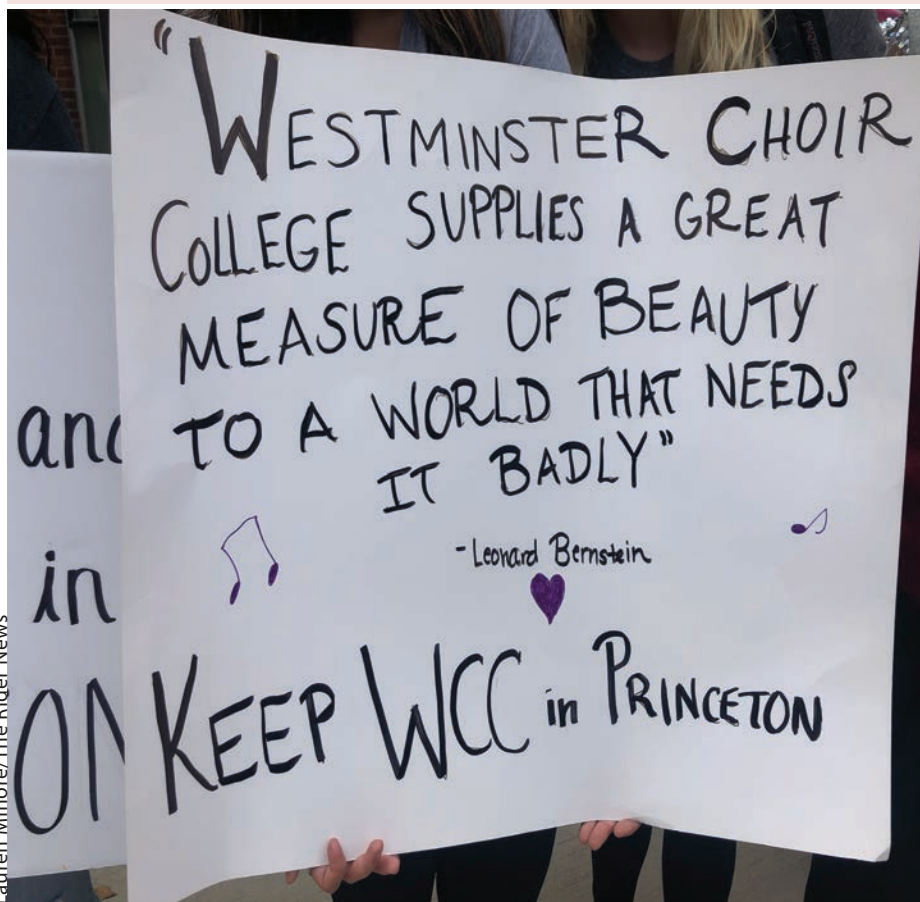 "WESTMINSTER CHOIR
COLLEGE SUPPLIES A GREAT
MEASURE OF BEAUTY
TO A WORLD THAT NEEDS
IT BADLY"
-Leonard Bernstein
KEEP WCC in PRINCETON
in
ON
/The Rider News